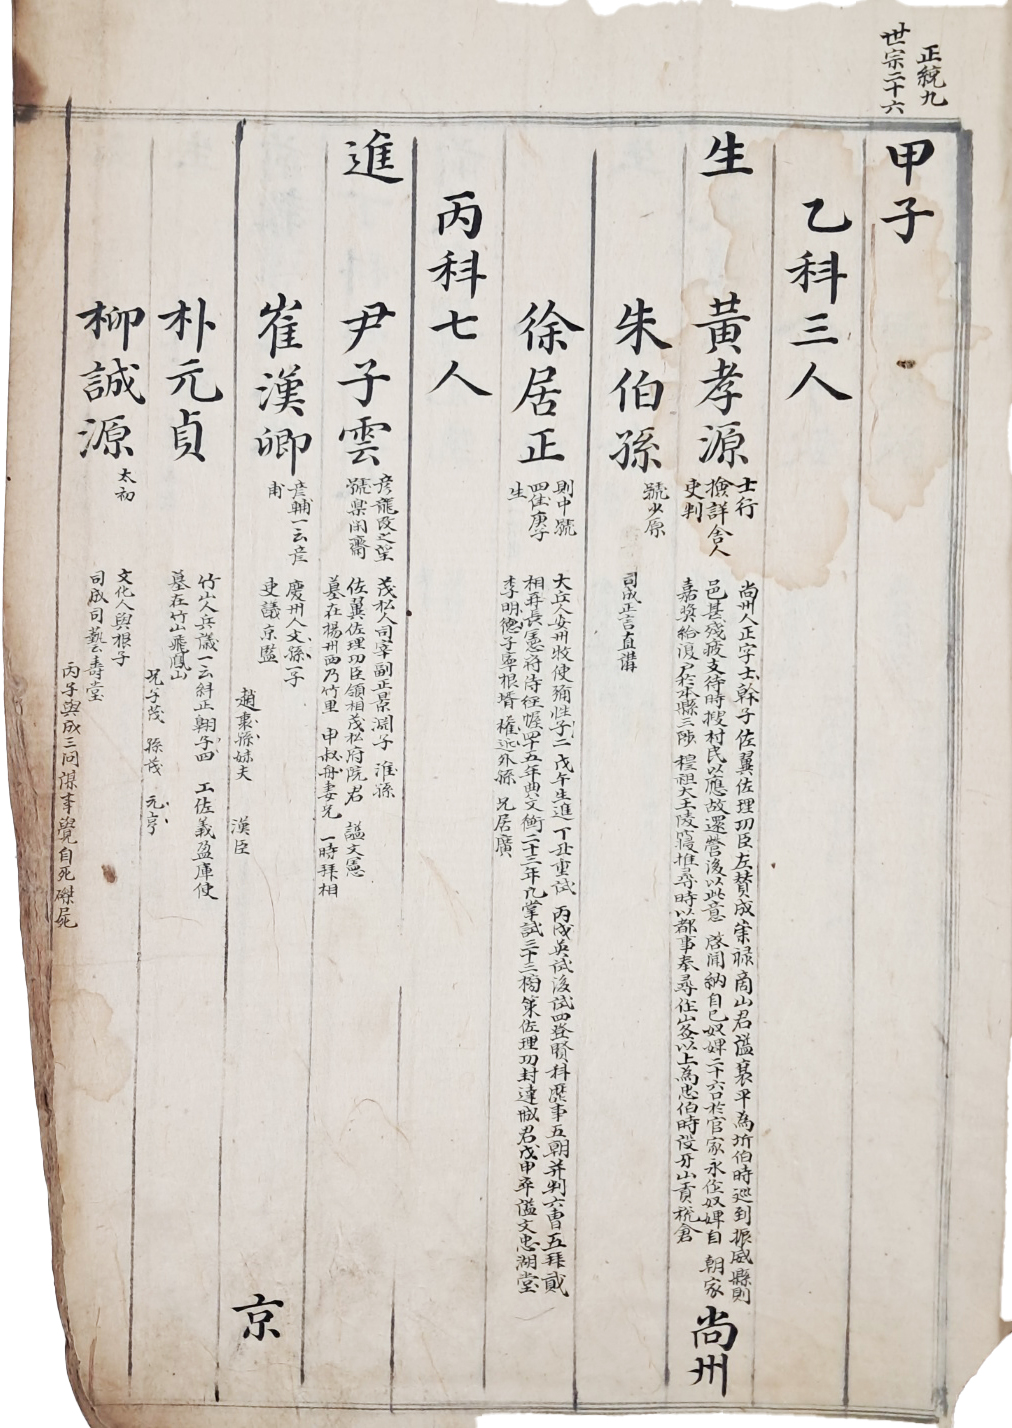 正統九
世宗二十六
甲子
乙科三人
生
黃孝源
士行
檢詳舍人
吏判
尙州人正字士幹子佐翼佐理功臣左贊成崇祿商山君謚襄平為圻伯時巡到振威縣則
邑甚殘疲支待時搜村民以應故還營後以此意 啓聞納自己奴婢二十六口於官家永作奴婢自 朝家
嘉獎給復戶於本縣三陟 穆祖大王陵寢推尋時以都事奉尋住山麥以上為忠伯時設牙山貢稅倉
尙州
朱伯孫
號少原
司成正言直講
徐居正
剛中號
四佳庚子
生
大丘人安州牧使彌性子二戊午生進 丁丑重試 丙戌英試後試四登賢科歷事五朝幷判六曹五拜貳
相再長憲府侍經幄四十五年典文衡二十三年凡掌試二十三榜策佐理功封達城君戊申卒謚文忠湖堂
李明德子寧根壻 權近外孫 兄居廣
丙科七人
進
尹子雲
彦龍改之望
號樂閑齋
茂松人司宰副正景淵子 淮孫
佐翼佐理功臣領相茂松府院君 謚文憲
墓在楊州西乃竹里 申叔舟妻兄 一時拜相
崔漢卿
彦輔一云彦
甫
慶州人文孫子
吏議京監
趙衷孫妹夫 漢臣
京
朴元貞
竹山人兵議一云斜正翺子四 工佐義盈庫使
墓在竹山飛鳳山
兄子茂 孫茂 元亨
柳誠源
太初
文化人與根子
司成司藝壽堂
丙子與成三問謀事覺自死磔屍